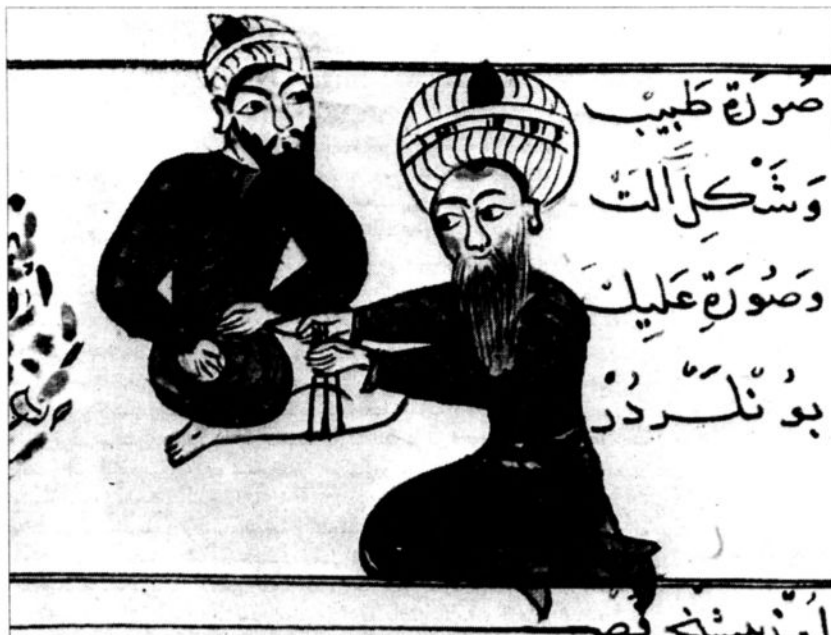 صُورَةِ طَبِيبْ
وَشَكْلِ آلَتْ
وَصُورَةِ عَلِيلْ
بُو نْلَرْدُرْ